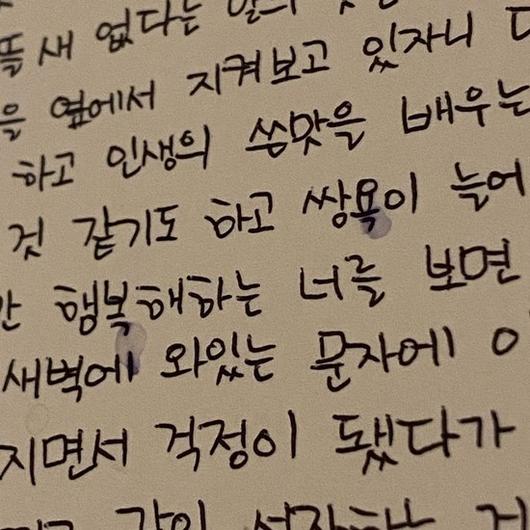 뜰새 없다는 말의
을 옆에서 지켜보고 있자니
하고 인생의 쓴맛을 배우는
것 같기도 하고 쌍욕이 늘어
간 행복해하는 너를 보면
새벽에 와있는 문자에 이
지면서 걱정이 됐다가
같이